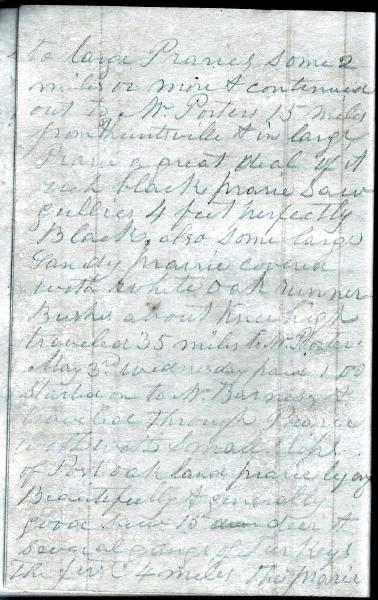 to large Praries some 2
miles or more & continued
out to Mr. Porters 25 miles
from Huntsville & in large
Prarie a great deal of it
rich black prarie Saw
gullies 4 feet perfectly
Black, also some large
Sandy prairie covered
with White oak runner
Bushes about Knee high
traveled 35 miles to Mr. Porters
May 3rd Wednesday paid 1.00
Started on to Mr. Barnes &
traveled through Prarie
with Small
of Post oak land prarie lying
Beautifully & generally
good Saw 15 deer &
several gangs of Turkeys
The first 4 miles the prarie